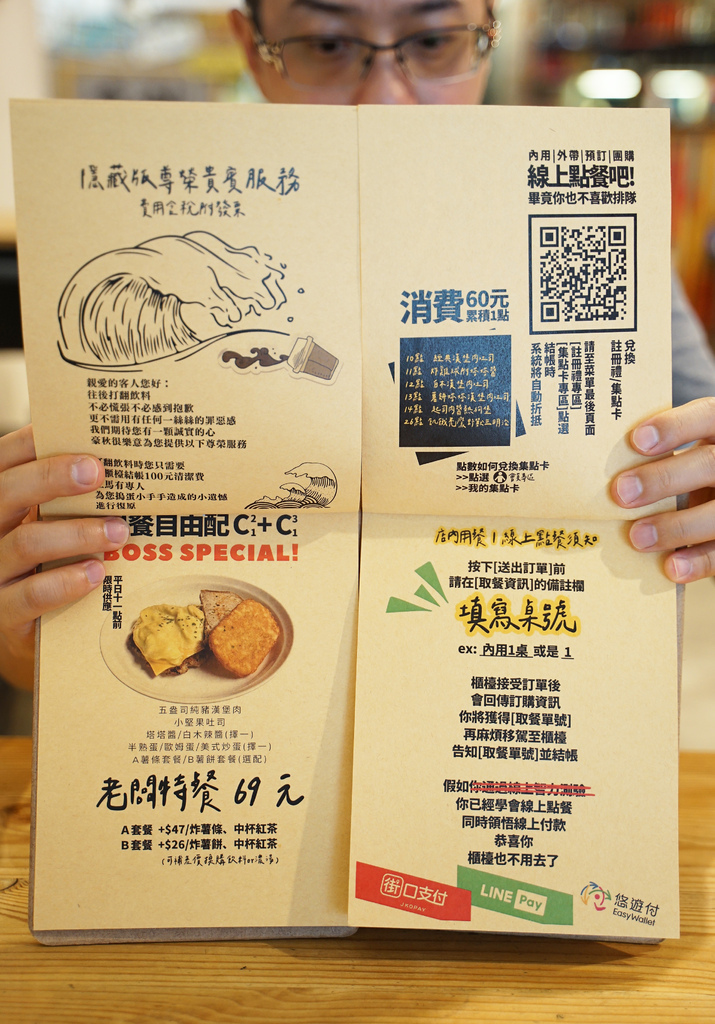 隱藏版尊榮貴賓服務
費用含稅附發票
親愛的客人您好：
往後打翻飲料
不必慌張不必感到抱歉
更不需用有任何一絲絲的罪惡感
我們期待您有一顆誠實的心
豪秋很樂意為您提供以下尊榮服務
打翻飲料時您只需要
櫃檯結帳100元清潔費
馬有專人
為您搗蛋小手手造成的小遺憾
進行復原
餐自由配 C²₁+ C³₁
BOSS SPECIAL!
平日十一點前
限時供應
五盎司純豬漢堡肉
小堅果吐司
塔塔醬/白木辣醬(擇一)
半熟蛋/歐姆蛋/美式炒蛋(擇一)
A薯條套餐/B薯餅套餐(選配)
老闆特餐 69 元
A套餐 +$47/炸薯條、中杯紅茶
B套餐 +$26/炸薯餅、中杯紅茶
(可補差價換購飲料or濃湯)
內用|外帶|預訂|團購
線上點餐吧!
畢竟你也不喜歡排隊
消費60元
累積1點
10點
11點
12點
13點
14點
26點
兌換
註冊禮/集點卡
請至菜單最後頁面
[註冊禮專區]
[集點卡專區]點選
結帳時
系統將自動折抵
點數如何兌換集點卡
>>點選 會員專區
>>我的集點卡
店內用餐 | 線上點餐須知
按下[送出訂單]前
請在[取餐資訊]的備註欄
填寫桌號
ex: 內用1桌 或是 1
櫃檯接受訂單後
會回傳訂購資訊
你將獲得[取餐單號]
再麻煩移駕至櫃檯
告知[取餐單號]並結帳
假如你通過線上智力測驗
你已經學會線上點餐
同時領悟線上付款
恭喜你
櫃檯也不用去了
街口支付
JKOPAY
LINE Pay
悠遊付
EasyWallet